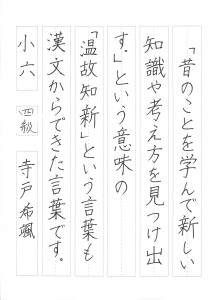 「昔のことを学んで新しい
知識や考え方を見つけ出
す。」という意味の
「温故知新」という言葉も
漢文からできた言葉です。
小六 四級 寺戸希颯